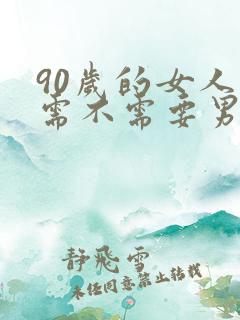 90歲的女人
需不需要男
静飛雪
未经同意禁止转载